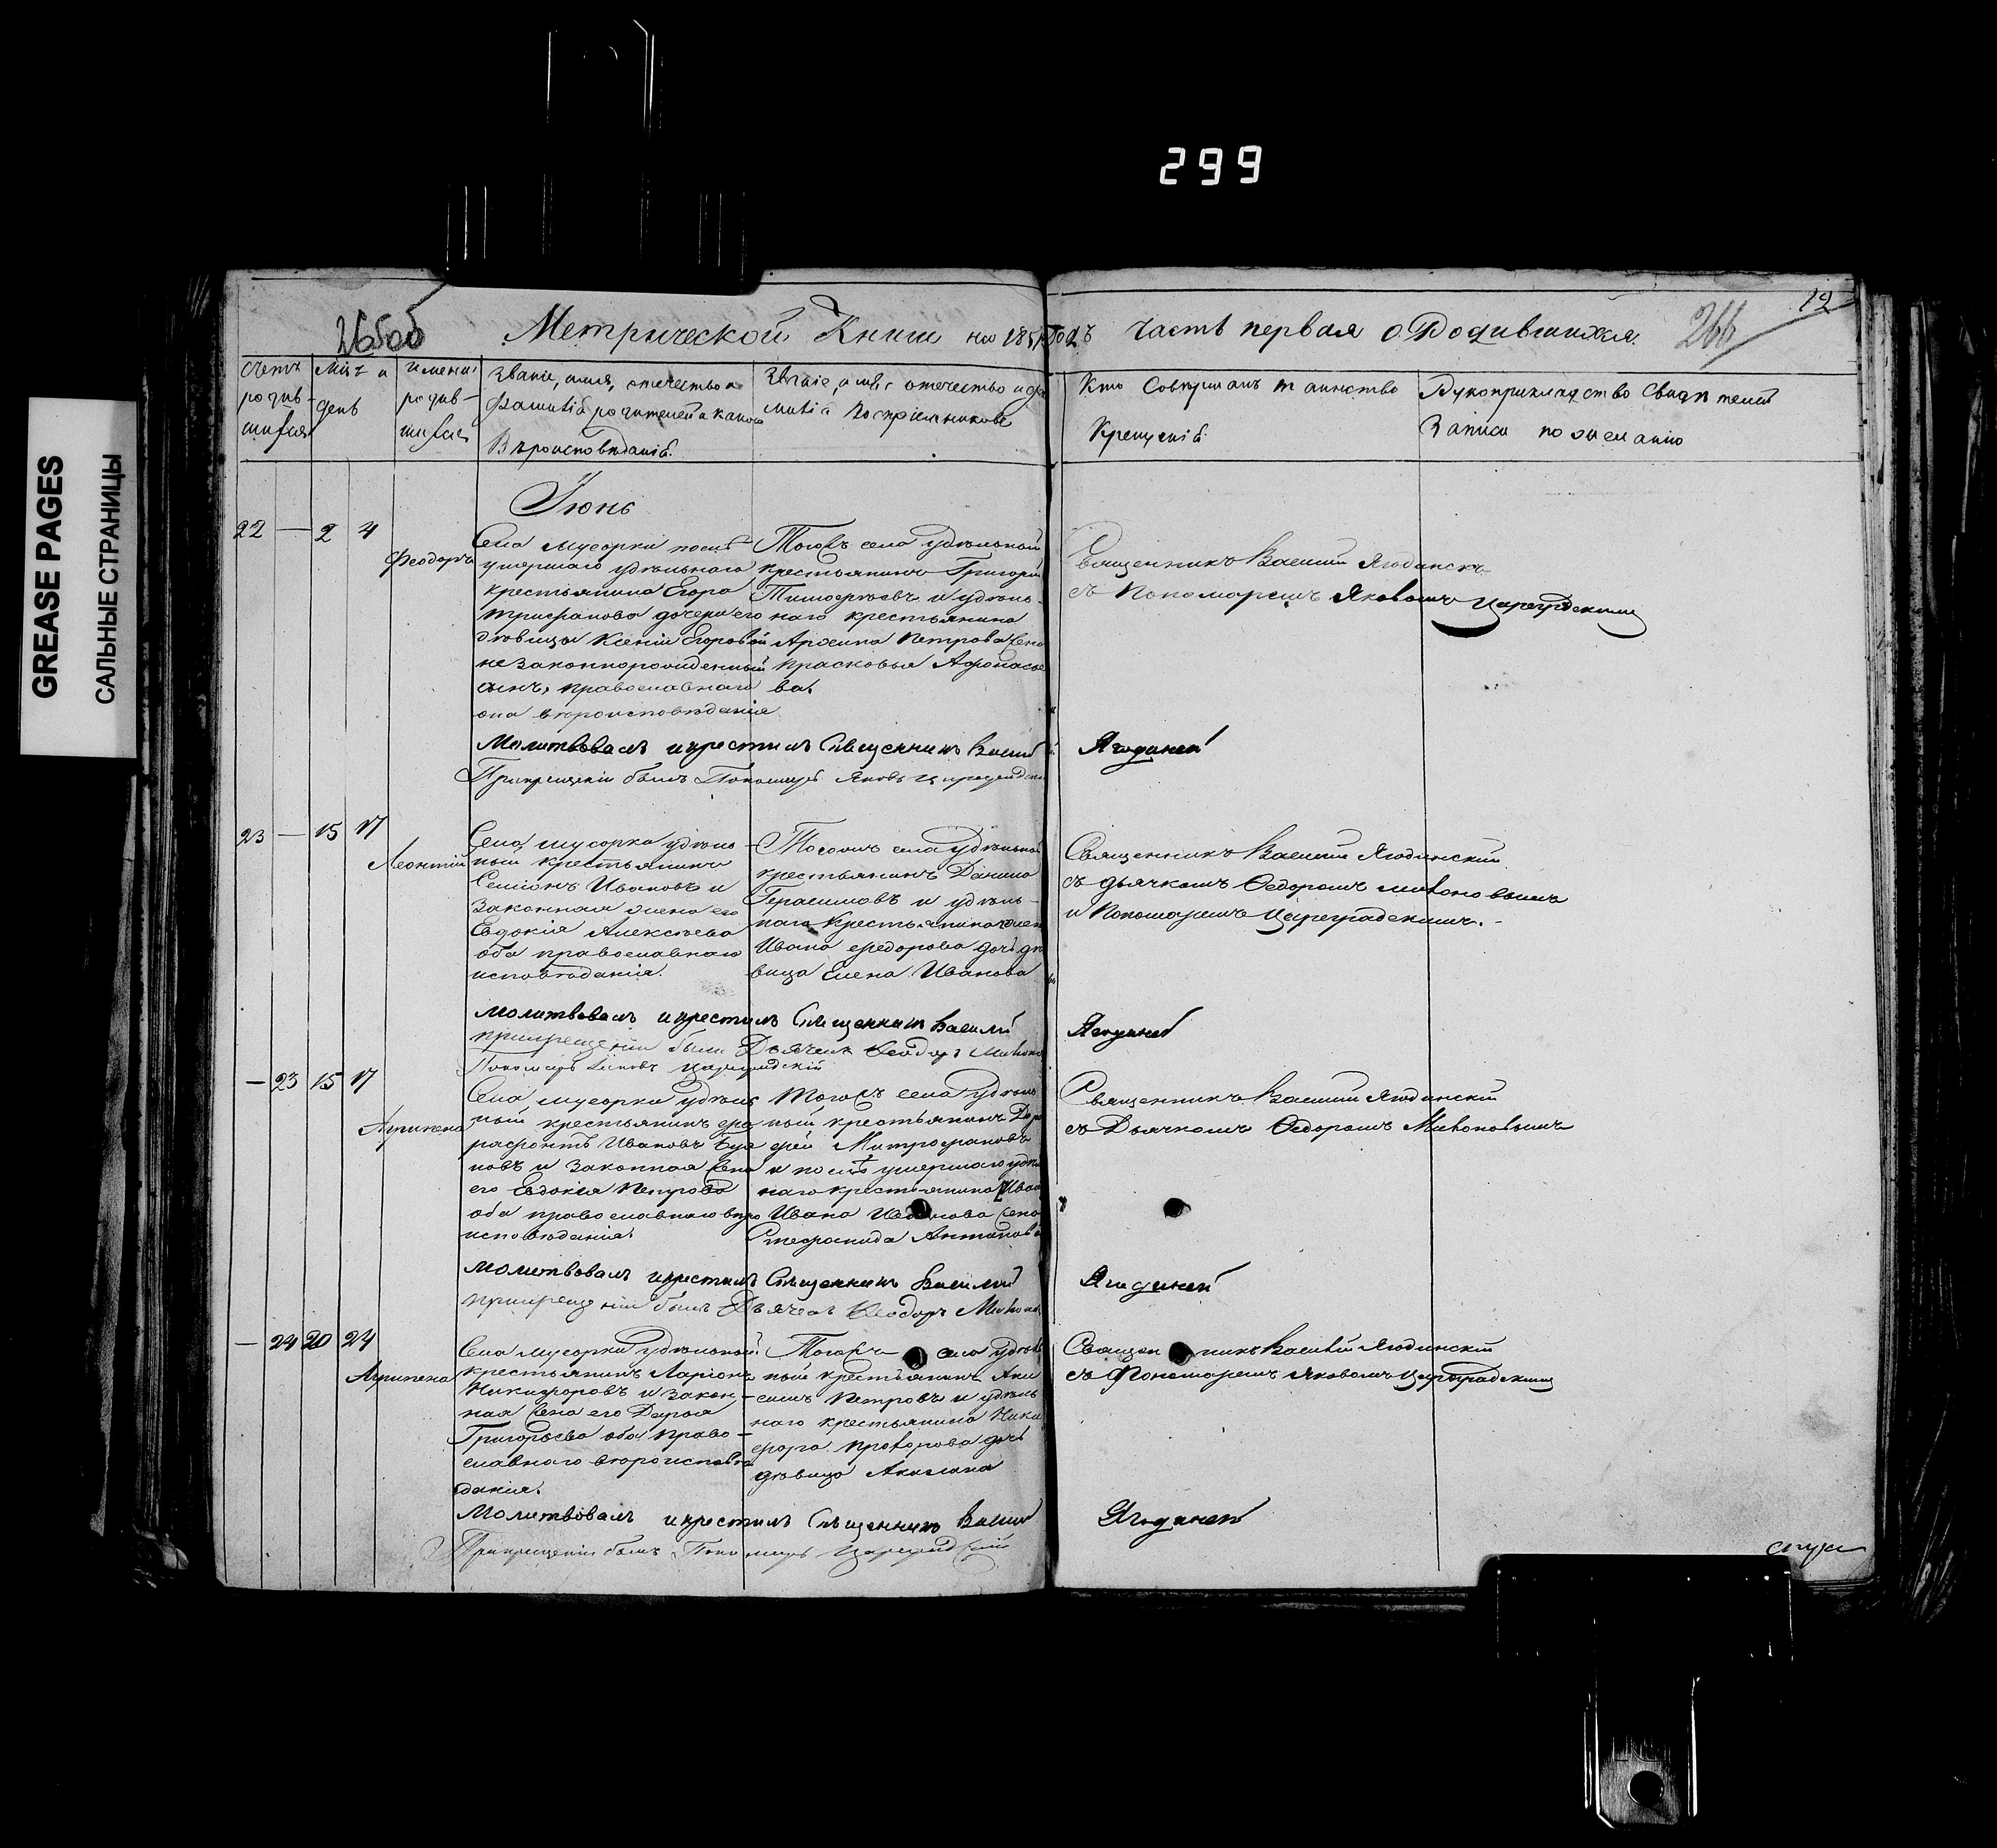 299
GREASE PAGES
САЛЬНЫЕ СТРАНИЦЫ
265об
Метрической Книги на 185 Годъ часть первая о Родившихся.
266
12
Счетъ родив-шихся
Мѣс. и день
имена родив-шихся
Званіе, имя, отечество и
фамилія родителей и какого
Вѣроисповѣданія.
Званіе, имя, отечество и фа
милія Воспріемниковъ
Кто Совершалъ таинство
Крещенія.
Рукоприкладство Свидѣтелей
Записи по желанію
Іюнь
22 — 2 4
Феодоръ
Села Мусорки послѣ
умершаго удѣльнаго
крестьянина Егора
Трифанова дочери его
дѣвицы Ксеніи Егоровой
незаконнорожденный
сынъ, православнаго
она вѣроисповѣданія
Тогожъ села удѣльный
крестьянинъ Григорій
Тимофѣевъ и удѣль-
наго крестьянина
Петрова жена
Прасковья Афонасье
ва.
Священникъ Василій Ягодинскъ
съ Пономаремъ Яковомъ Цареградскимъ
Молитвовалъ и крестилъ Священникъ Василій Ягодинскій
При крещеніи былъ Пономарь Яковъ Цареградскій
23 — 15 17
Леонтій
Села Мусорка удѣль-
ный крестьянинъ
Семіонъ Ивановъ и
Законная жена его
Евдокія Алексѣева
оба православнаго
исповѣданія.
Тогожъ села удѣльный
крестьянинъ Данило
Герасимовъ и удѣль-
наго крестьянина
Ивана Федорова дочь дѣ
вица Елена Иванова
Священникъ Василій Ягодинскій
съ дьячкомъ Федоромъ Милоновымъ
и Пономаремъ Цареградскимъ.
Молитвовалъ и крестилъ Священникъ Василій Ягодинскій
при крещеніи были Дьячекъ Феодоръ Милоно
Пономарь Яковъ Цареградскій
— 23 15 17
Агрипена
Села Мусорка удѣль
ный крестьянинъ Фе
рафонтъ Ивановъ
новъ и Законная жена
его Евдокія Петрова
оба православнаго вѣро
исповѣданія.
Тогожъ села удѣль
ный крестьянинъ До
фей Митрофановъ
и послѣ умершаго удѣль
наго крестьянина Ива
Ивана Иванова жена
Стефанида Антонова
Священникъ Василій Ягодинскій
съ Дьячкомъ Федоромъ Милоновымъ
Молитвовалъ и крестилъ Священникъ Василій Ягодинскій
при крещеніи былъ Дьячекъ Феодоръ Милоно
— 24 20 24
Агрипена
Села Мусорки удѣльный
крестьянинъ Ларіонъ
Никифоровъ и закон-
ная жена его Дарья
Григорьева оба право-
славнаго вѣроисповѣ
данія.
Тогожъ села удѣль
ный крестьянинъ Ани
симъ Петровъ и удѣль
наго крестьянина Ники
фора Прохорова дочь
дѣвица Акилина
Священникъ Василій Ягодинскій
съ Пономаремъ Яковомъ Цареградскимъ
Молитвовалъ и крестилъ Священникъ Василій Ягодинскій
При крещеніи былъ Пономарь Цареградскій